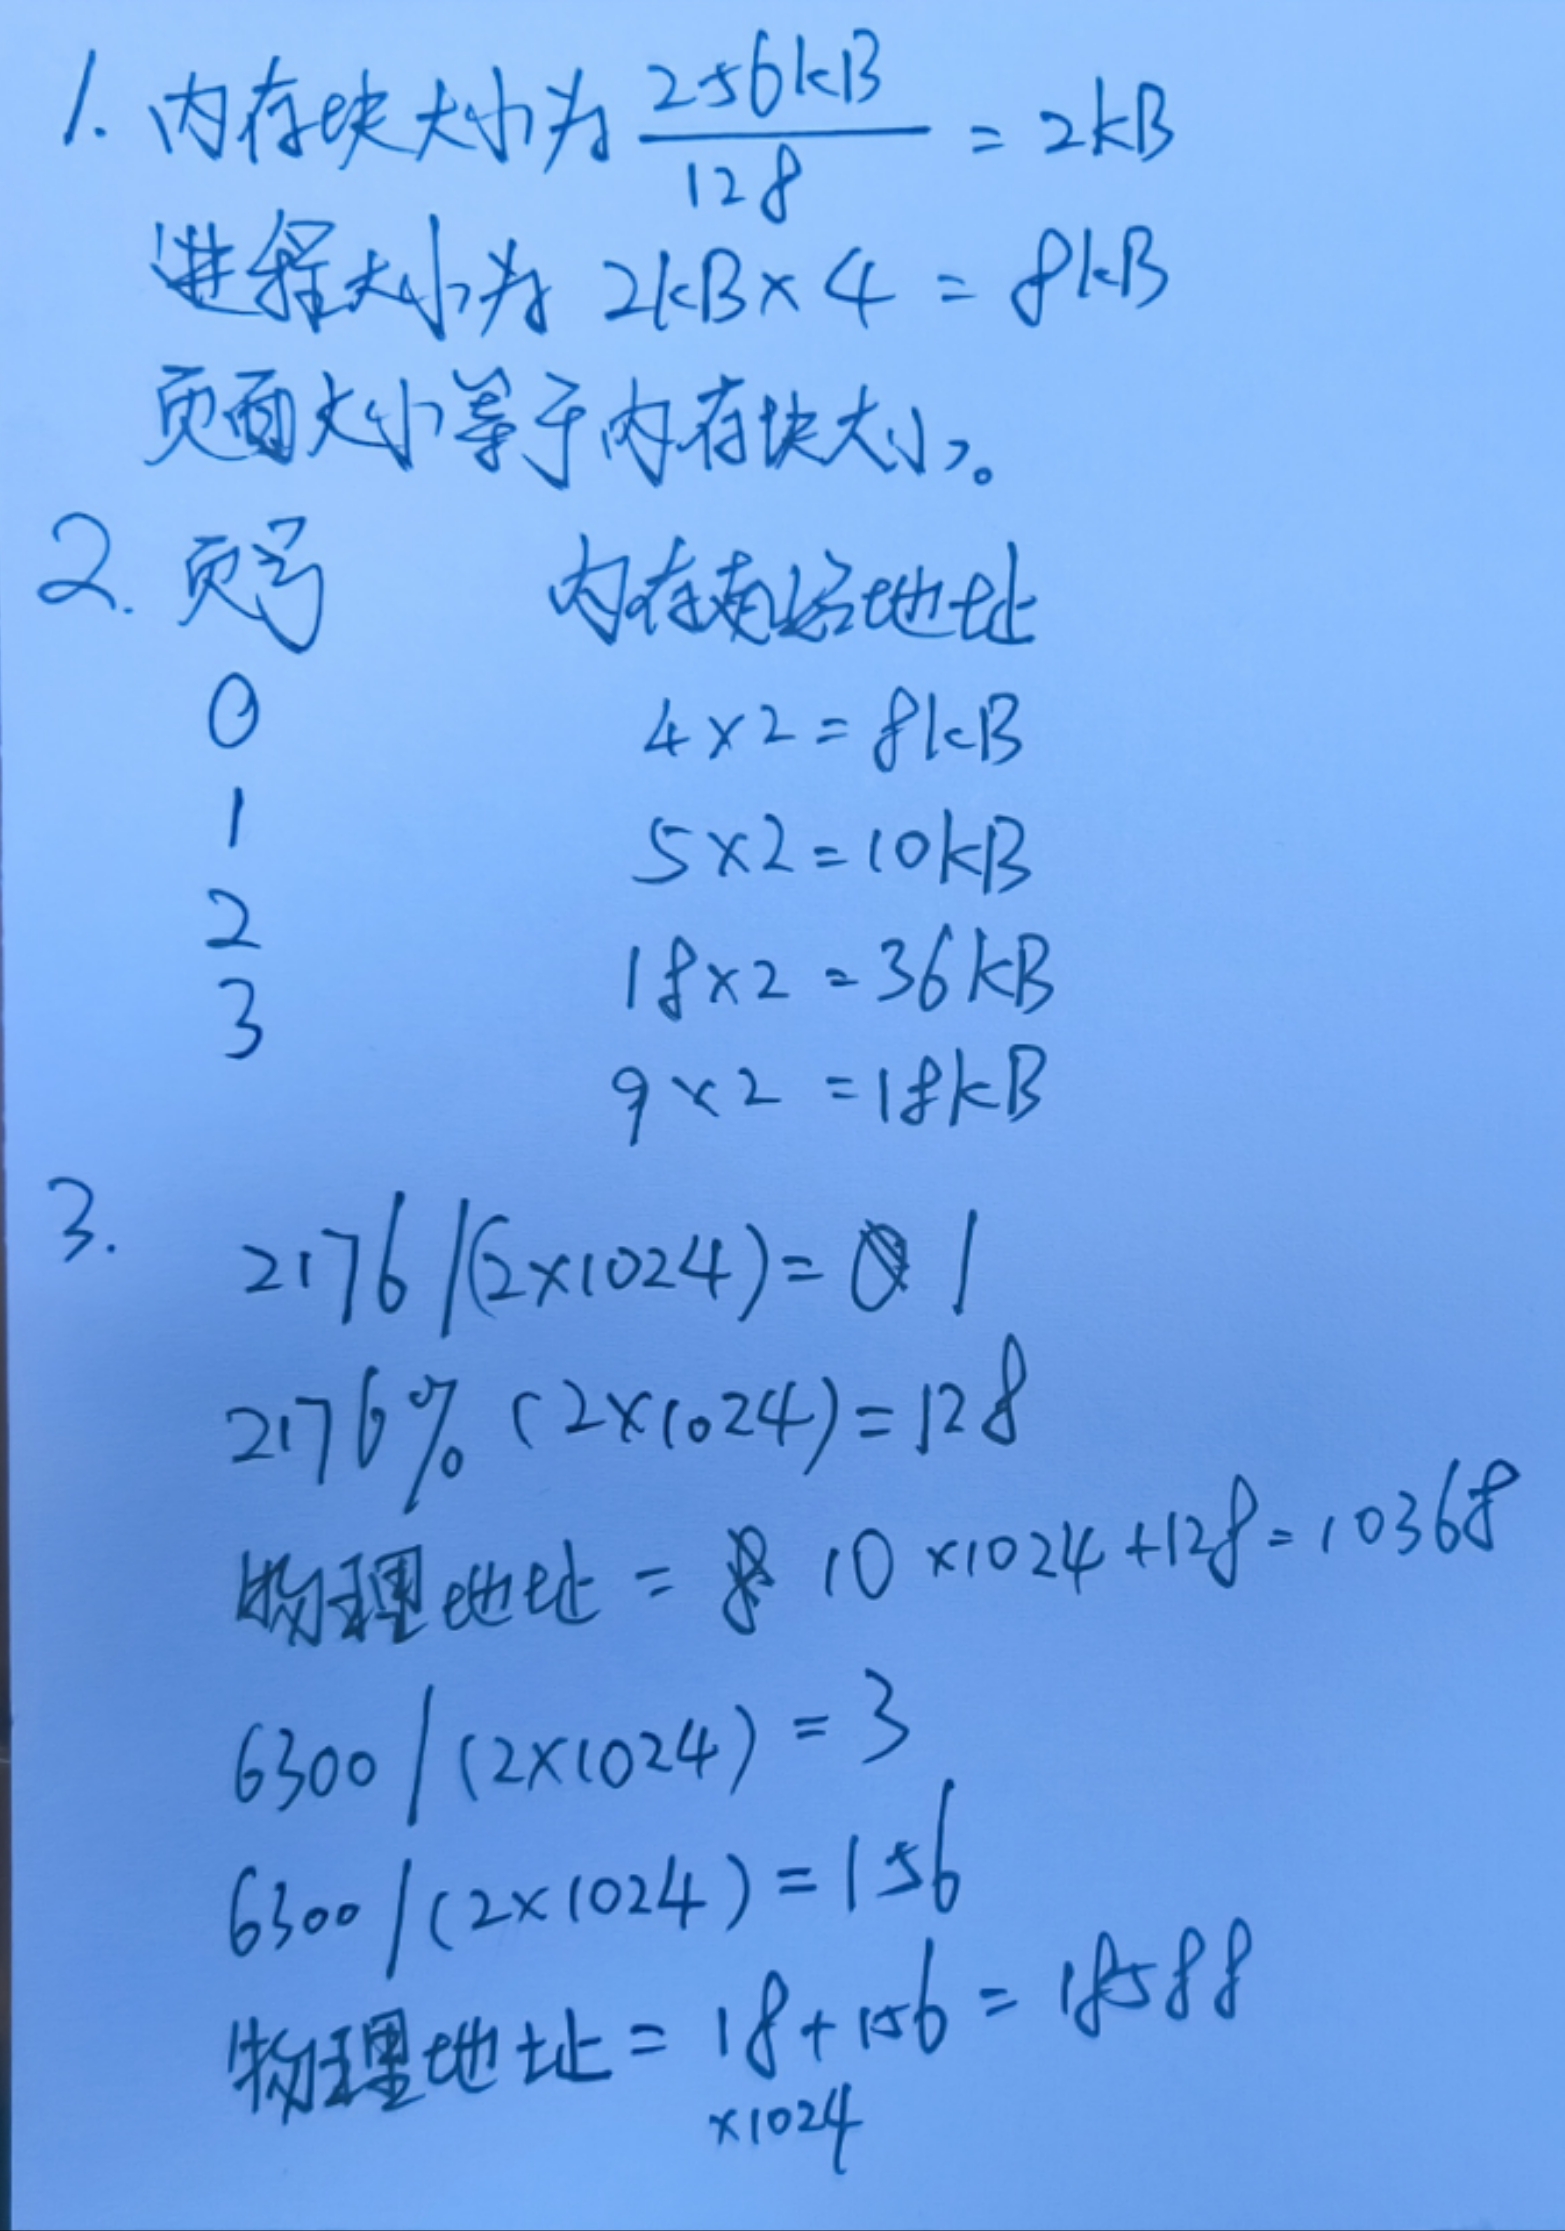 1. 内存块大小为 256kB/128 = 2kB
进程大小为 2kB×4 = 8kB
页面大小等于内存块大小。
2. 页号 内存起始地址
0 4×2=8kB
1 5×2=10kB
2 18×2=36kB
3 9×2=18kB
3. 2176/(2×1024)=1
2176%(2×1024)=128
物理地址=10×1024+128=10368
6300/(2×1024)=3
6300/(2×1024)=156
物理地址=18+156=18588
×1024